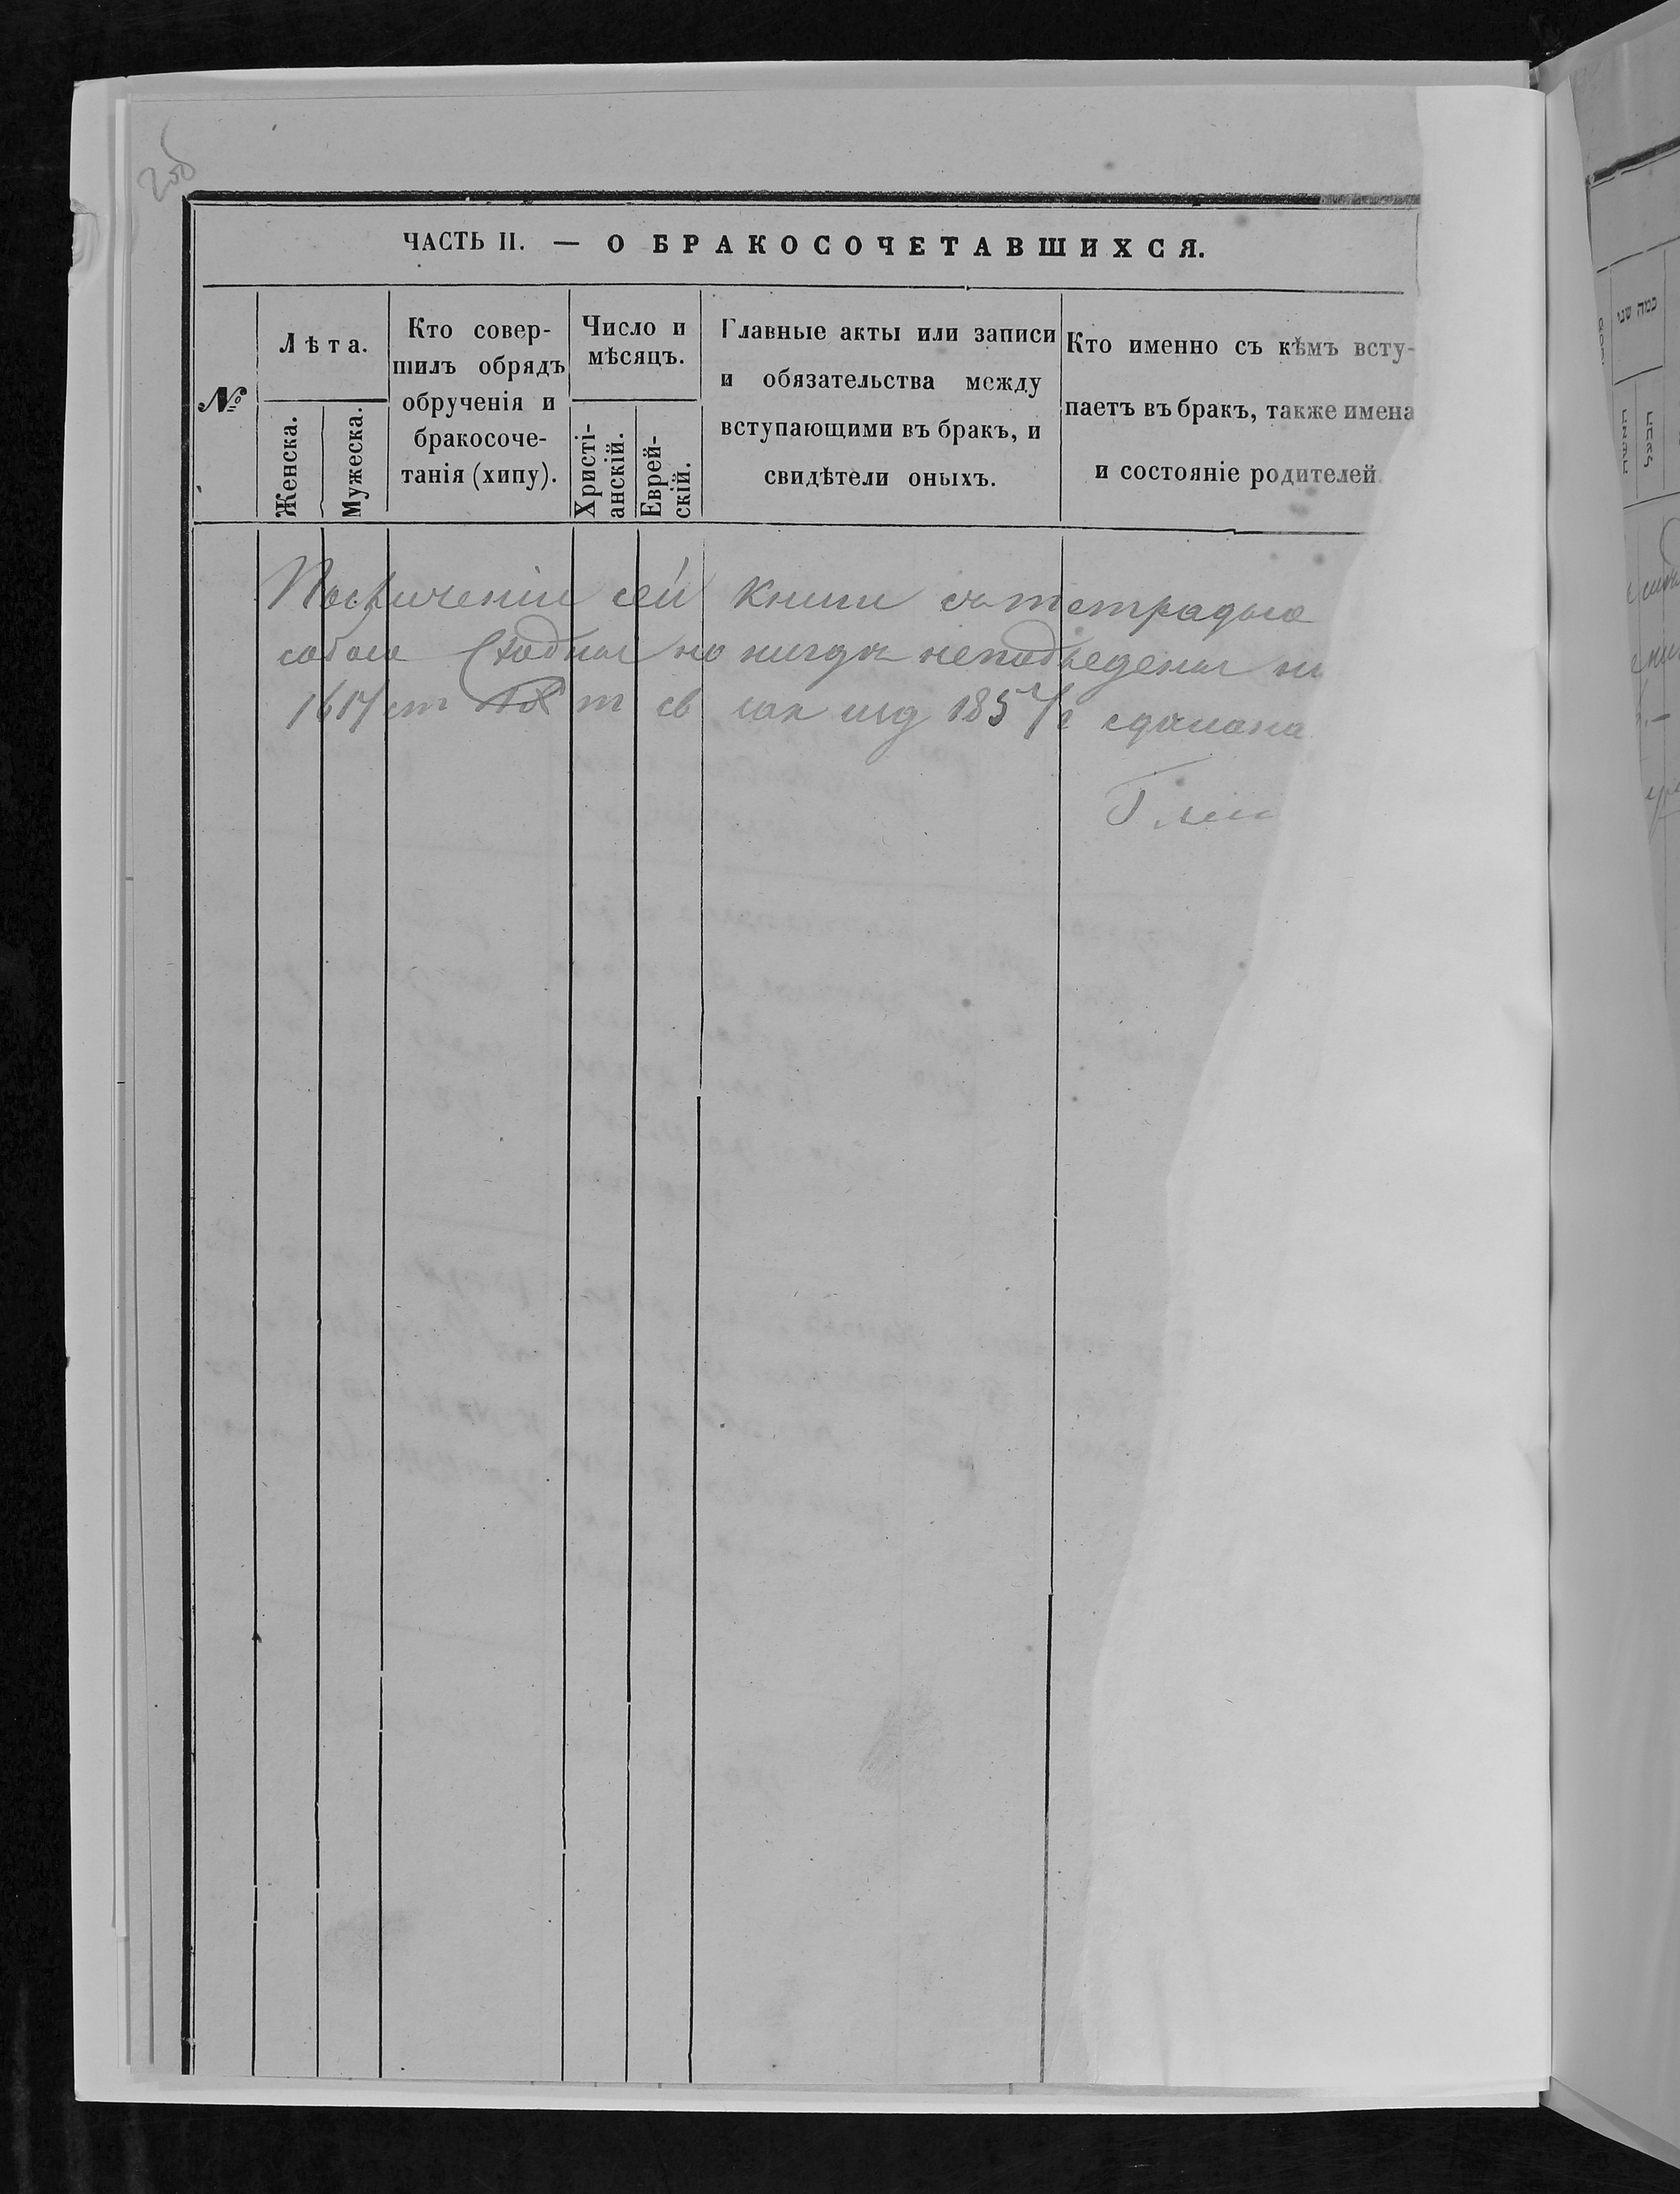 ЧАСТЬ II. — О БРАКОСОЧЕТАВШИХСЯ.
№
Лѣта.
Женска.
Мужеска.
Кто совер-
шилъ обрядъ
обрученія и
бракосоче-
танія (хипу).
Число и
мѣсяцъ.
Христі-
анскій.
Еврей-
скій.
Главные акты или записи
и обязательства между
вступающими въ бракъ, и
свидѣтели оныхъ.
Кто именно съ кѣмъ всту-
паетъ въ бракъ, также имена
и состояніе родителей
По сличеніи сей книги съ тетрадью
собою сходны но нигдѣ неподведены
1617 ст т св зак изд 1857 г сдѣлана
כמה שני